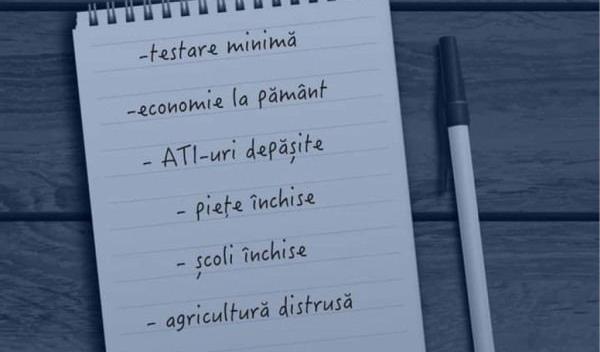 -testare minimă
-economie la pământ
- ATI-uri depășite
- piețe închise
- școli închise
- agricultură distrusă